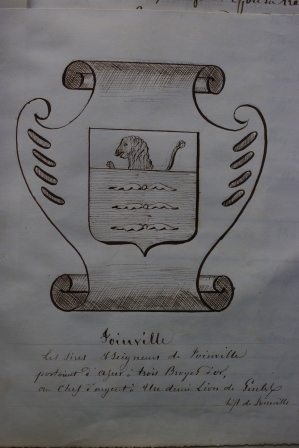 Joinville
Les sires & Seigneurs de Joinville
portaient d'azur à trois Broyes d'or,
au Chef d'argent à Un demi Lion de
de Joinville